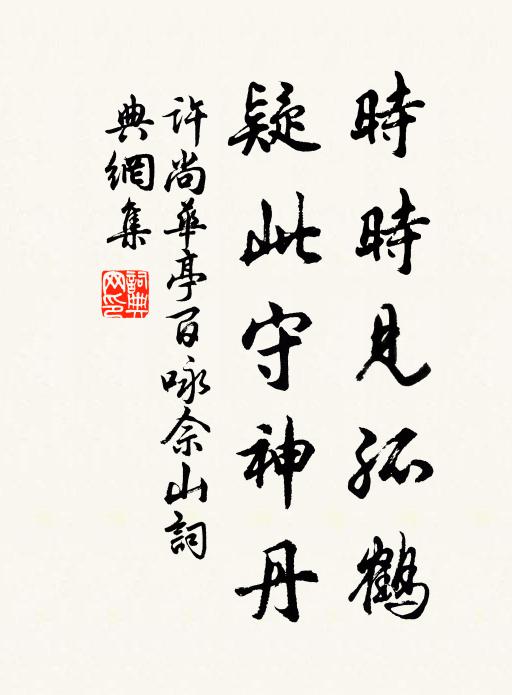 時時見孤鶴
疑此守神丹
許尚華亭百咏佘山詞
典網集
詞典
网印